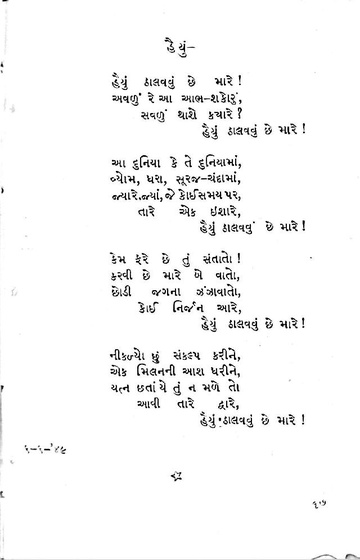 હૈયું–
હૈયું ઠાલવવું છે મારે !
અવળું રે આ આભ-શકોરું,
સવળું થાશે કયારે ?
હૈયું ઠાલવવું છે મારે !
આ દુનિયા કે તે દુનિયામાં,
વ્યોમ, ધરા, સૂરજ-ચંદામાં,
જ્યારે.જ્યાં, જે કોઈ સમય પર,
તારે એક ઇશારે,
હૈયું ઠાલવવું છે મારે !
કેમ ફરે છે તું સંતાતો !
કરવી છે મારે બે વાતો,
છોડી જગના ઝંઝાવાતો,
કોઈ નિર્જન આરે,
હૈયું ઠાલવવું છે મારે !
નીકળ્યો છું સંકલ્પ કરીને,
એક મિલનની આશ ધરીને,
યત્ન છતાં યે તું ન મળે તો
આવી તારે દ્વારે,
હૈયું ઠાલવવું છે મારે !
૬-૧-'૪૯
૬૭